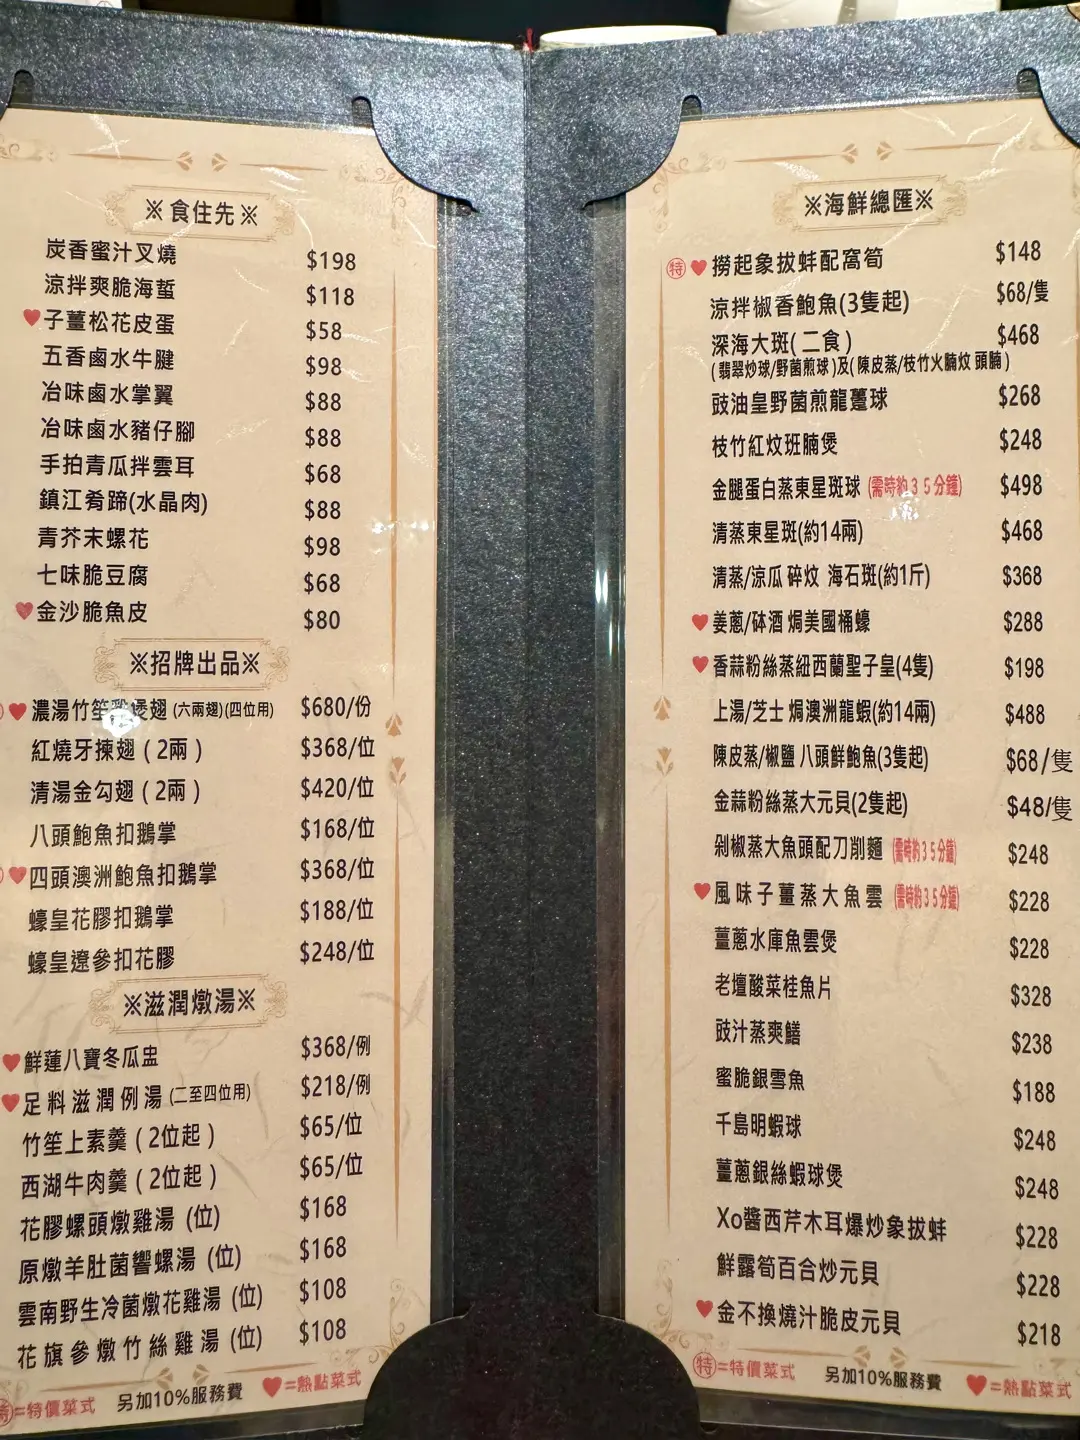 ※食住先※
炭香蜜汁叉燒 $198
涼拌爽脆海蜇 $118
子薑松花皮蛋 $58
五香鹵水牛腱 $98
冶味鹵水掌翼 $88
冶味鹵水豬仔腳 $88
手拍青瓜拌雲耳 $68
鎮江肴蹄(水晶肉) $88
青芥末螺花 $98
七味脆豆腐 $68
金沙脆魚皮 $80
※招牌出品※
濃湯竹笙煲翅 (六兩翅)(四位用) $680/份
紅燒牙揀翅 ( 2兩 ) $368/位
清湯金勾翅 ( 2兩 ) $420/位
八頭鮑魚扣鵝掌 $168/位
四頭澳洲鮑魚扣鵝掌 $368/位
蠔皇花膠扣鵝掌 $188/位
蠔皇遼參扣花膠 $248/位
※滋潤燉湯※
鮮蓮八寶冬瓜盅 $368/例
足料滋潤例湯 (二至四位用) $218/例
竹笙上素羹 ( 2位起 ) $65/位
西湖牛肉羹 ( 2位起 ) $65/位
花膠螺頭燉雞湯 (位) $168
原燉羊肚菌響螺湯 (位) $168
雲南野生冷菌燉花雞湯 (位) $108
花旗參燉竹絲雞湯 (位) $108
=特價菜式 另加10%服務費 ♥=熱點菜式
※海鮮總匯※
特 ♥ 撈起象拔蚌配窩筍 $148
涼拌椒香鮑魚(3隻起) $68/隻
深海大斑( 二食 ) $468
( 翡翠炒球/野菌煎球 )及( 陳皮蒸/枝竹火腩炆 頭腩 )
豉油皇野菌煎龍躉球 $268
枝竹紅炆班腩煲 $248
金腿蛋白蒸東星斑球 (需時約３５分鐘) $498
清蒸東星斑(約14兩) $468
清蒸/涼瓜 碎炆 海石斑(約1斤) $368
♥ 姜蔥/砵酒 焗美國桶蠔 $288
♥ 香蒜粉絲蒸紐西蘭聖子皇(4隻) $198
上湯/芝士 焗澳洲龍蝦(約14兩) $488
陳皮蒸/椒鹽 八頭鮮鮑魚(3隻起) $68/隻
金蒜粉絲蒸大元貝(2隻起) $48/隻
剁椒蒸大魚頭配刀削麵 (需時約３５分鐘) $248
♥ 風味子薑蒸大魚雲 (需時約３５分鐘) $228
薑蔥水庫魚雲煲 $228
老壇酸菜桂魚片 $328
豉汁蒸爽鱔 $238
蜜脆銀雪魚 $188
千島明蝦球 $248
薑蔥銀絲蝦球煲 $248
Xo醬西芹木耳爆炒象拔蚌 $228
鮮露筍百合炒元貝 $228
♥ 金不換燒汁脆皮元貝 $218
特=特價菜式 另加10%服務費 ♥=熱點菜式